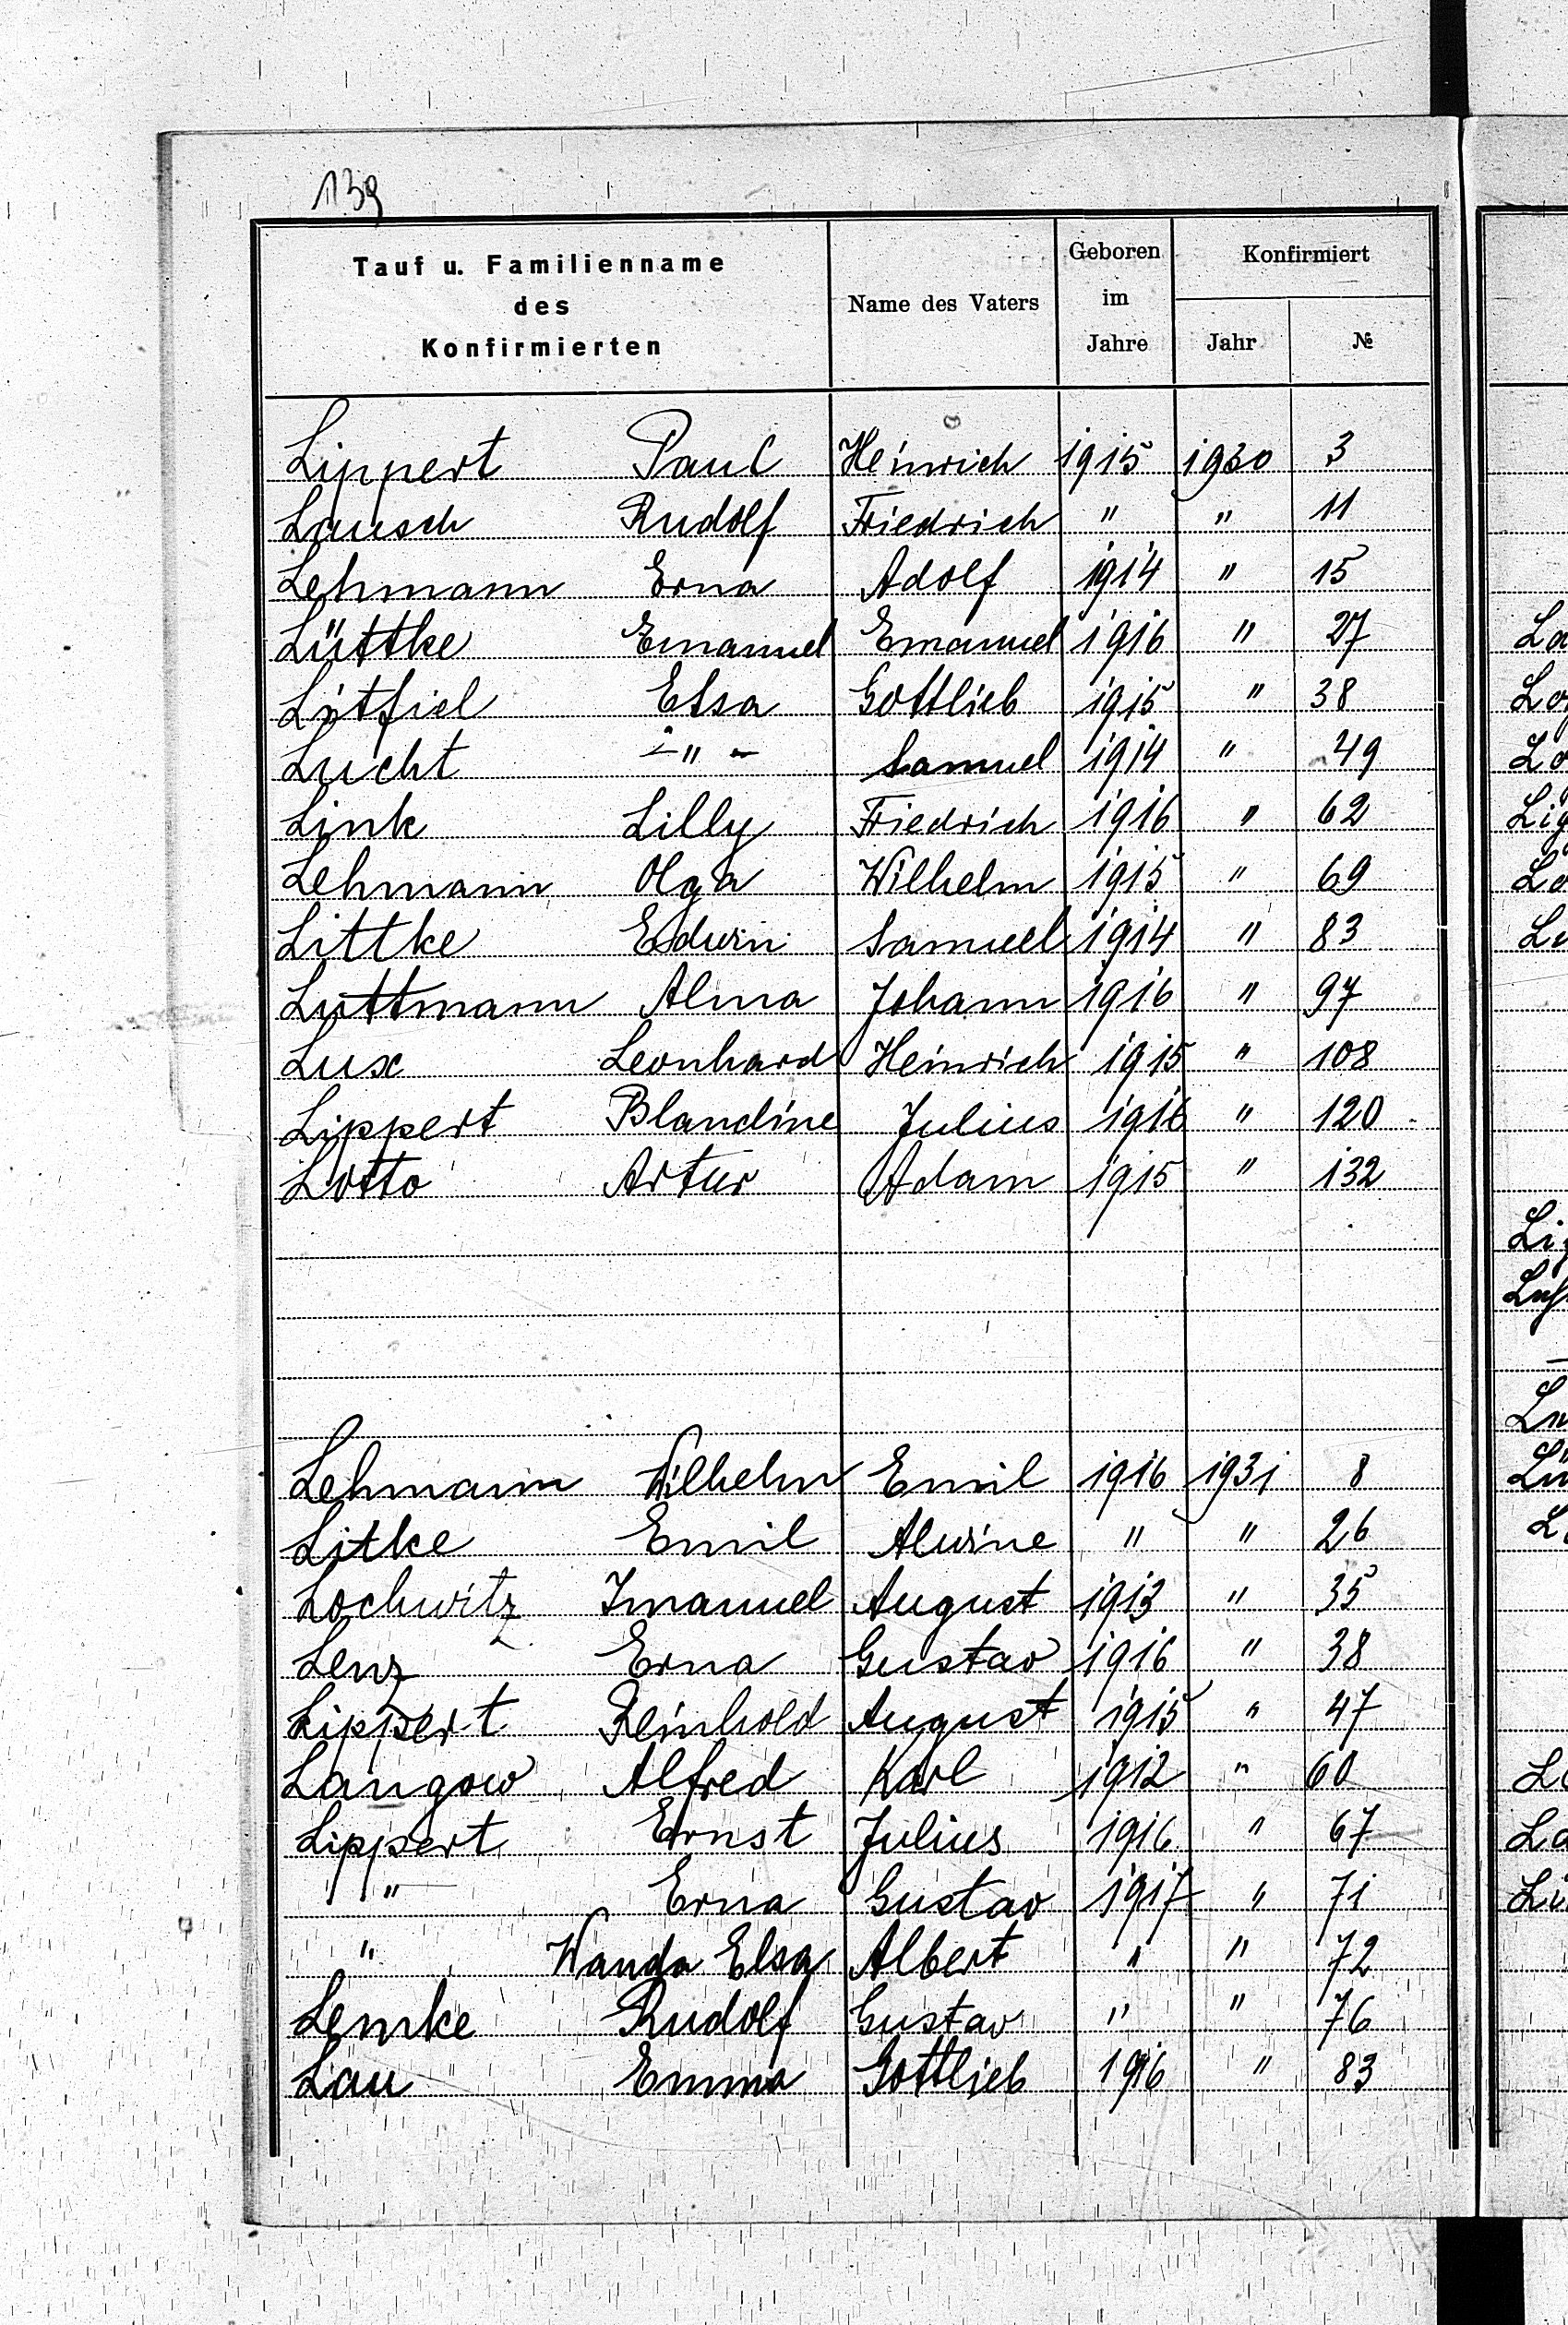 139
Tauf u. Familienname des Konfirmierten Name des Vaters Geboren im Jahre Konfirmiert Jahr №
Lippert Paul Heinrich 1915 1930 3
Lausch Rudolf Friedrich " " 11
Lehmann Erna Adolf 1914 " 15
Lüttke Emanuel Emanuel 1916 " 27
Litfiel Elsa Gottlieb 1915 " 38
Lucht -"- Samuel 1914 " 49
Link Lilly Friedrich 1916 " 62
Lehmann Olga Wilhelm 1915 " 69
Littke Edwin Samuel 1914 " 83
Luttmann Alma Johann 1916 " 97
Lux Leonhard Heinrich 1915 " 108
Lippert Blandine Julius 1916 " 120
Lotto Artur Adam 1915 " 132
Lehmann Wilhelm Emil 1916 1931 8
Litke Emil Alwine " " 26
Lochwitz Imanuel August 1913 " 35
Lenz Erna Gustav 1916 " 38
Lippert Reinhold August 1915 " 47
Langow Alfred Karl 1912 " 60
Lippert Ernst Julius 1916 " 67
" Erna Gustav 1917 " 71
" Wanda Elsa Albert " " 72
Lemke Rudolf Gustav " " 76
Lau Emma Gottlieb 1916 " 83